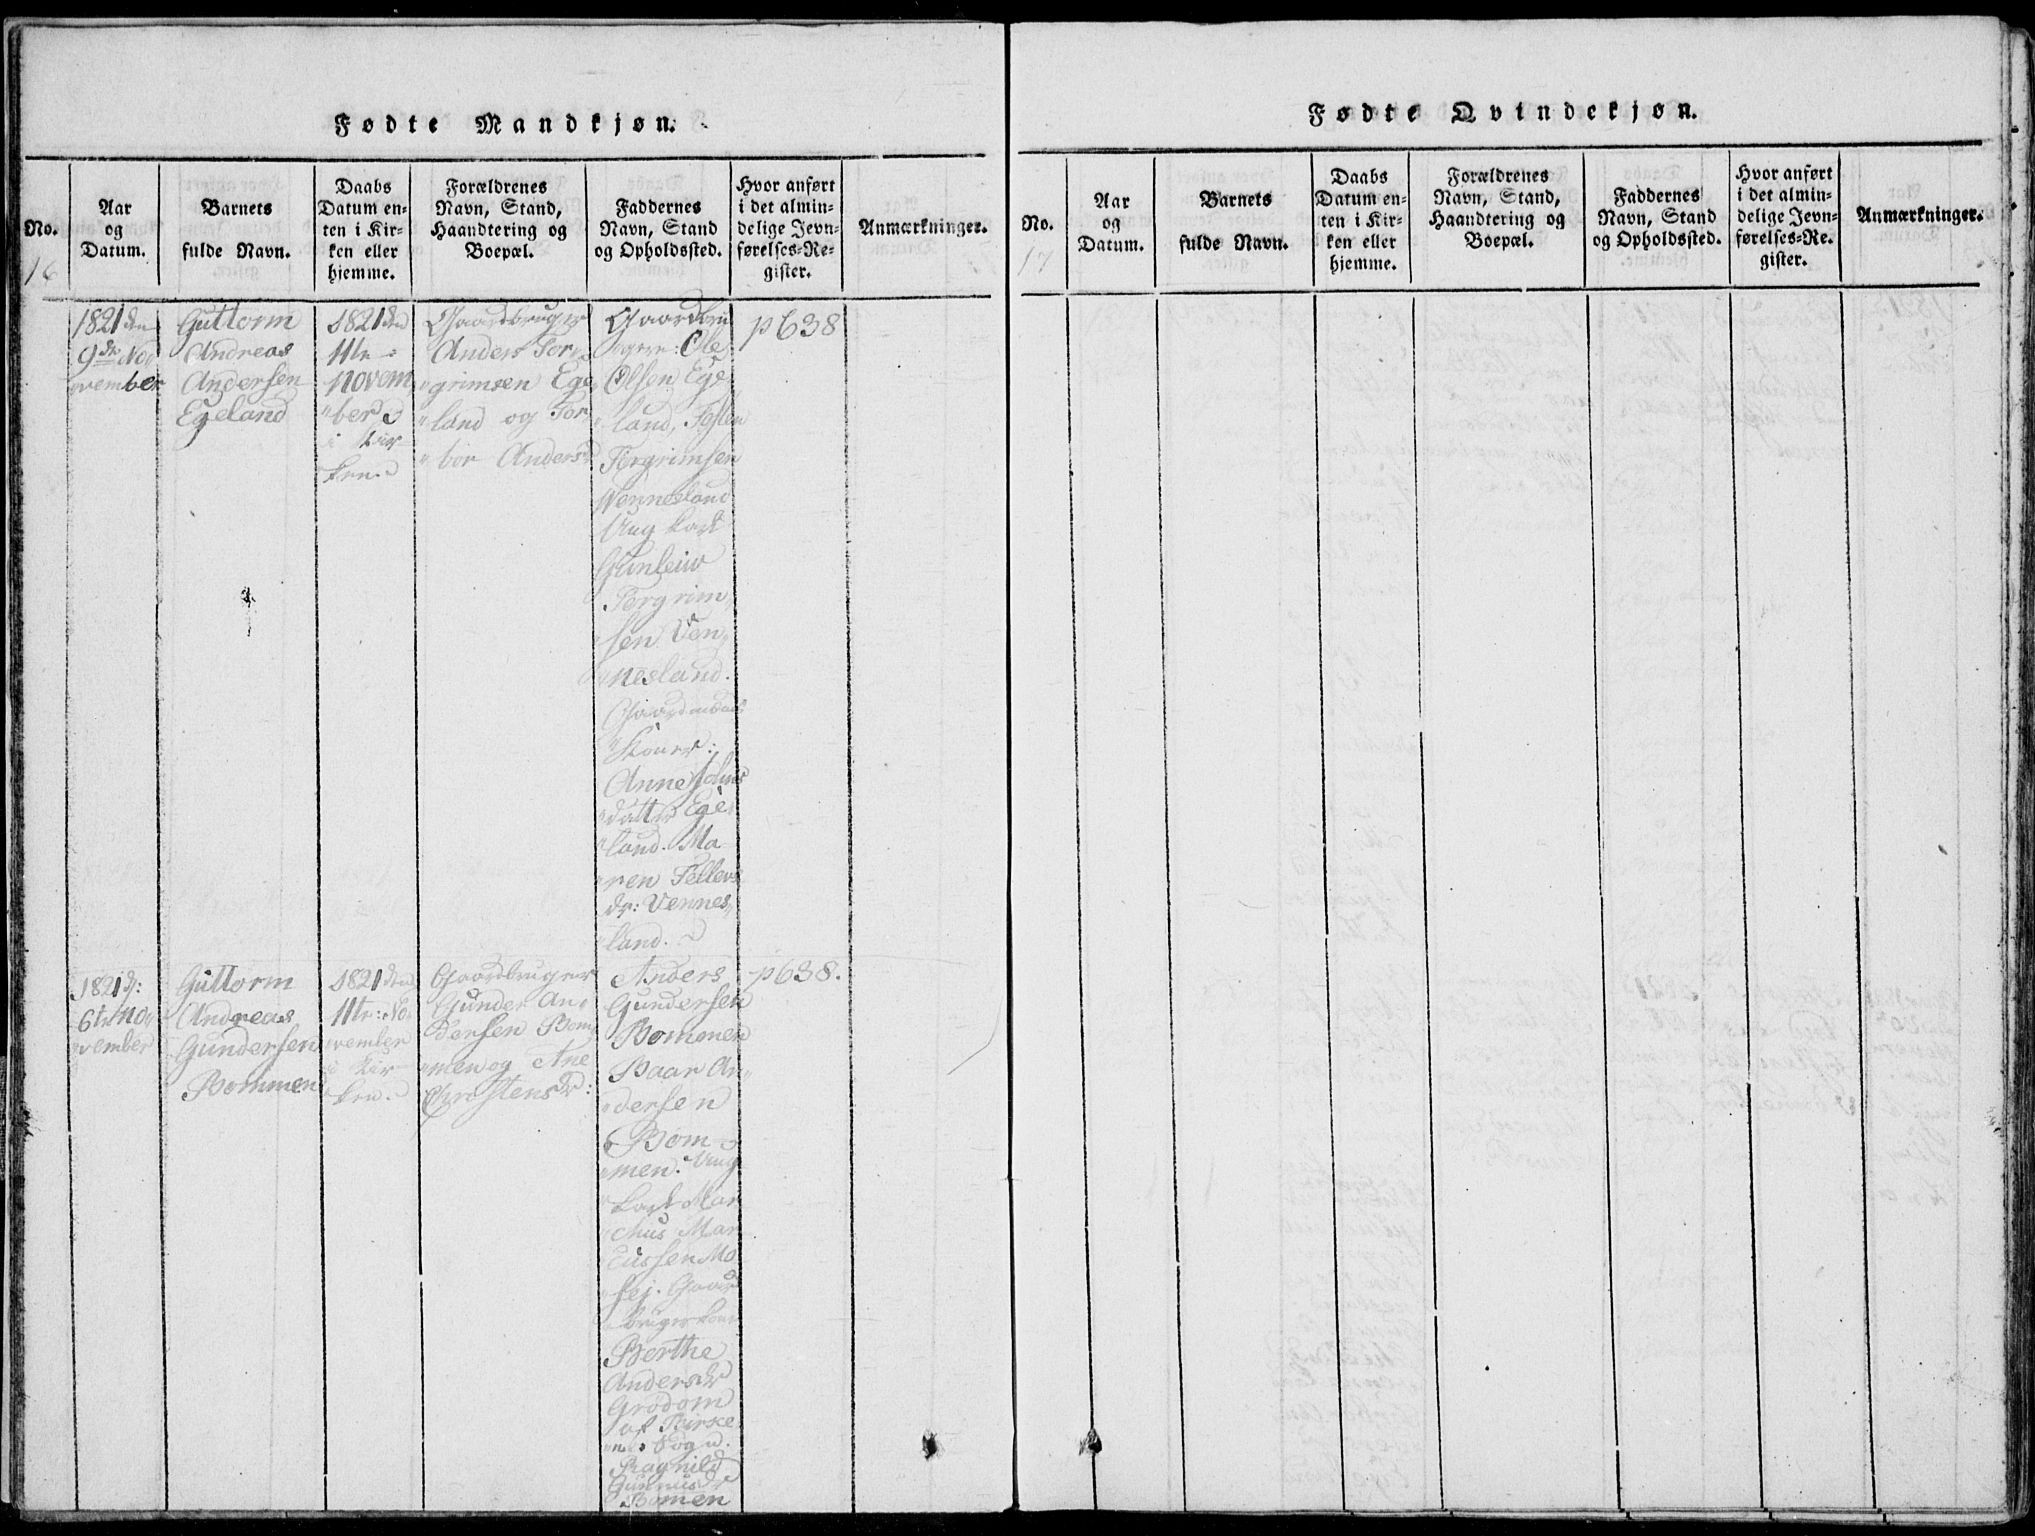 Fødte Mandkjøn.
No.
Aar
og
Datum.
Barnets
fulde Navn.
Daabs
Datum en-
ten i Kir-
ken eller
hjemme.
Forældrenes
Navn, Stand,
Haandtering og
Boepæl.
Faddernes
Navn, Stand
og Opholdssted.
Hvor anført
i det almin-
delige Jevn-
førelses-Re-
gister.
Anmærkninger.
16
1821 den
9de No„
„vember
Guttorm
Andreas
Andersen
Egeland
1821 den
11te
novem„
„ber
i Kir
ken.
Gaardbruger
Anders Tor„
„grimsen Ege„
„land og Tor„
„bor Andersdr
Ole
Olsen Ege„
„land,
Torgrimsen
Vennesland
Ung karl
Gunleiv
Torgrim„
„sen Ven„
„nesland.
„koner:
Anne Johns
„datter Ege„
„land. Ma
„ren Tellevs
dr: Vennes„
„land.
p 638
1821 d:
6te no„
„vember
Guttorm
Andreas
Gundersen
Bommen
1821 den
11te No„
„vember
i Kir
ken.
Gaardbruger
Gunder An„
„dersen Bom„
„men og Ane
Christensdr:
Anders
Gundersen
Bommen
Baar An„
„dersen
Bom„
„men. Ung
karl Mar
„cus Mar
„cussen Mo
„sej. Gaard
„bruger kone
Berthe
Andersdr
Grødom
af Birke„
„næs Sogn.
Ragnild
Gunnusdr
Bomen
p 638.
Fødte Qvindekjøn.
No.
Aar
og
Datum.
Barnets
fulde Navn.
Daabs
Datum en-
ten i Kir-
ken eller
hjemme.
Forældrenes
Navn, Stand,
Haandtering og
Boepæl.
Faddernes
Navn, Stand
og Opholdssted.
Hvor anført
i det almin-
delige Jevn-
førelses-Re-
gister.
Anmærkninger.
17